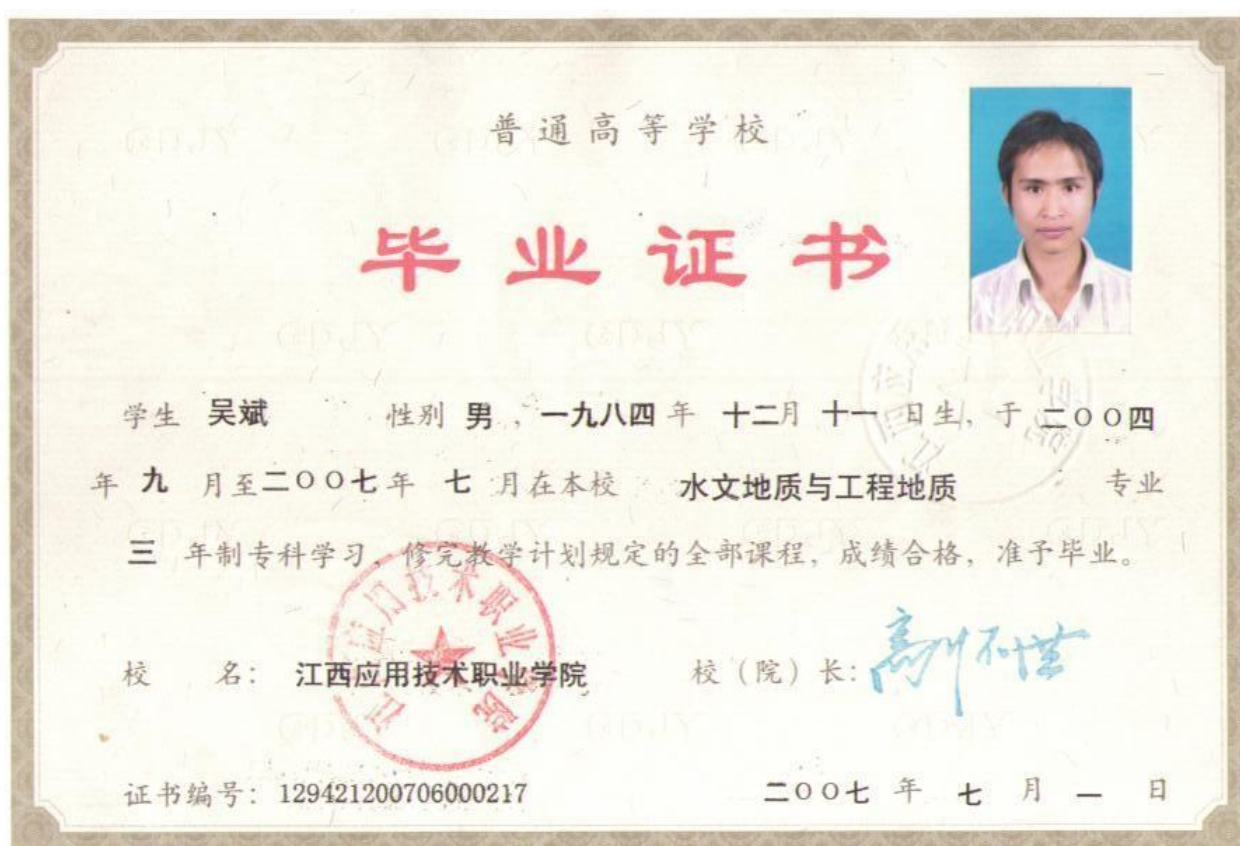 普通高等学校
毕业证书
学生 吴斌 性别 男，一九八四 年 十二月 十一 日生，于 二〇〇四
年 九 月至二〇〇七年 七 月在本校 水文地质与工程地质 专业
三 年制专科学习，修完教学计划规定的全部课程，成绩合格，准予毕业。
江西应用技术职业学院
校 名：江西应用技术职业学院 校（院）长：
证书编号：129421200706000217 二〇〇七 年 七 月 一 日